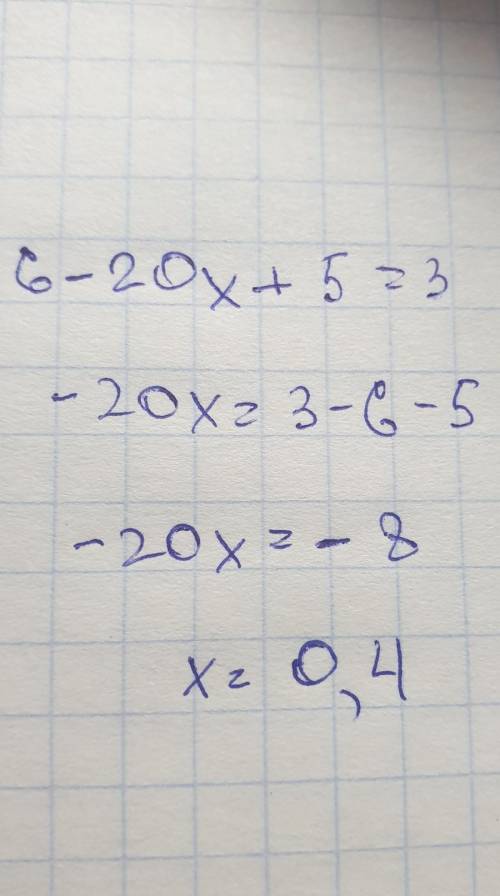 6-20x+5=3
-20x=3-6-5
-20x=-8
x=0,4